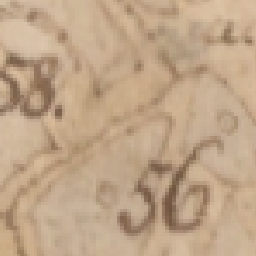 58.
56